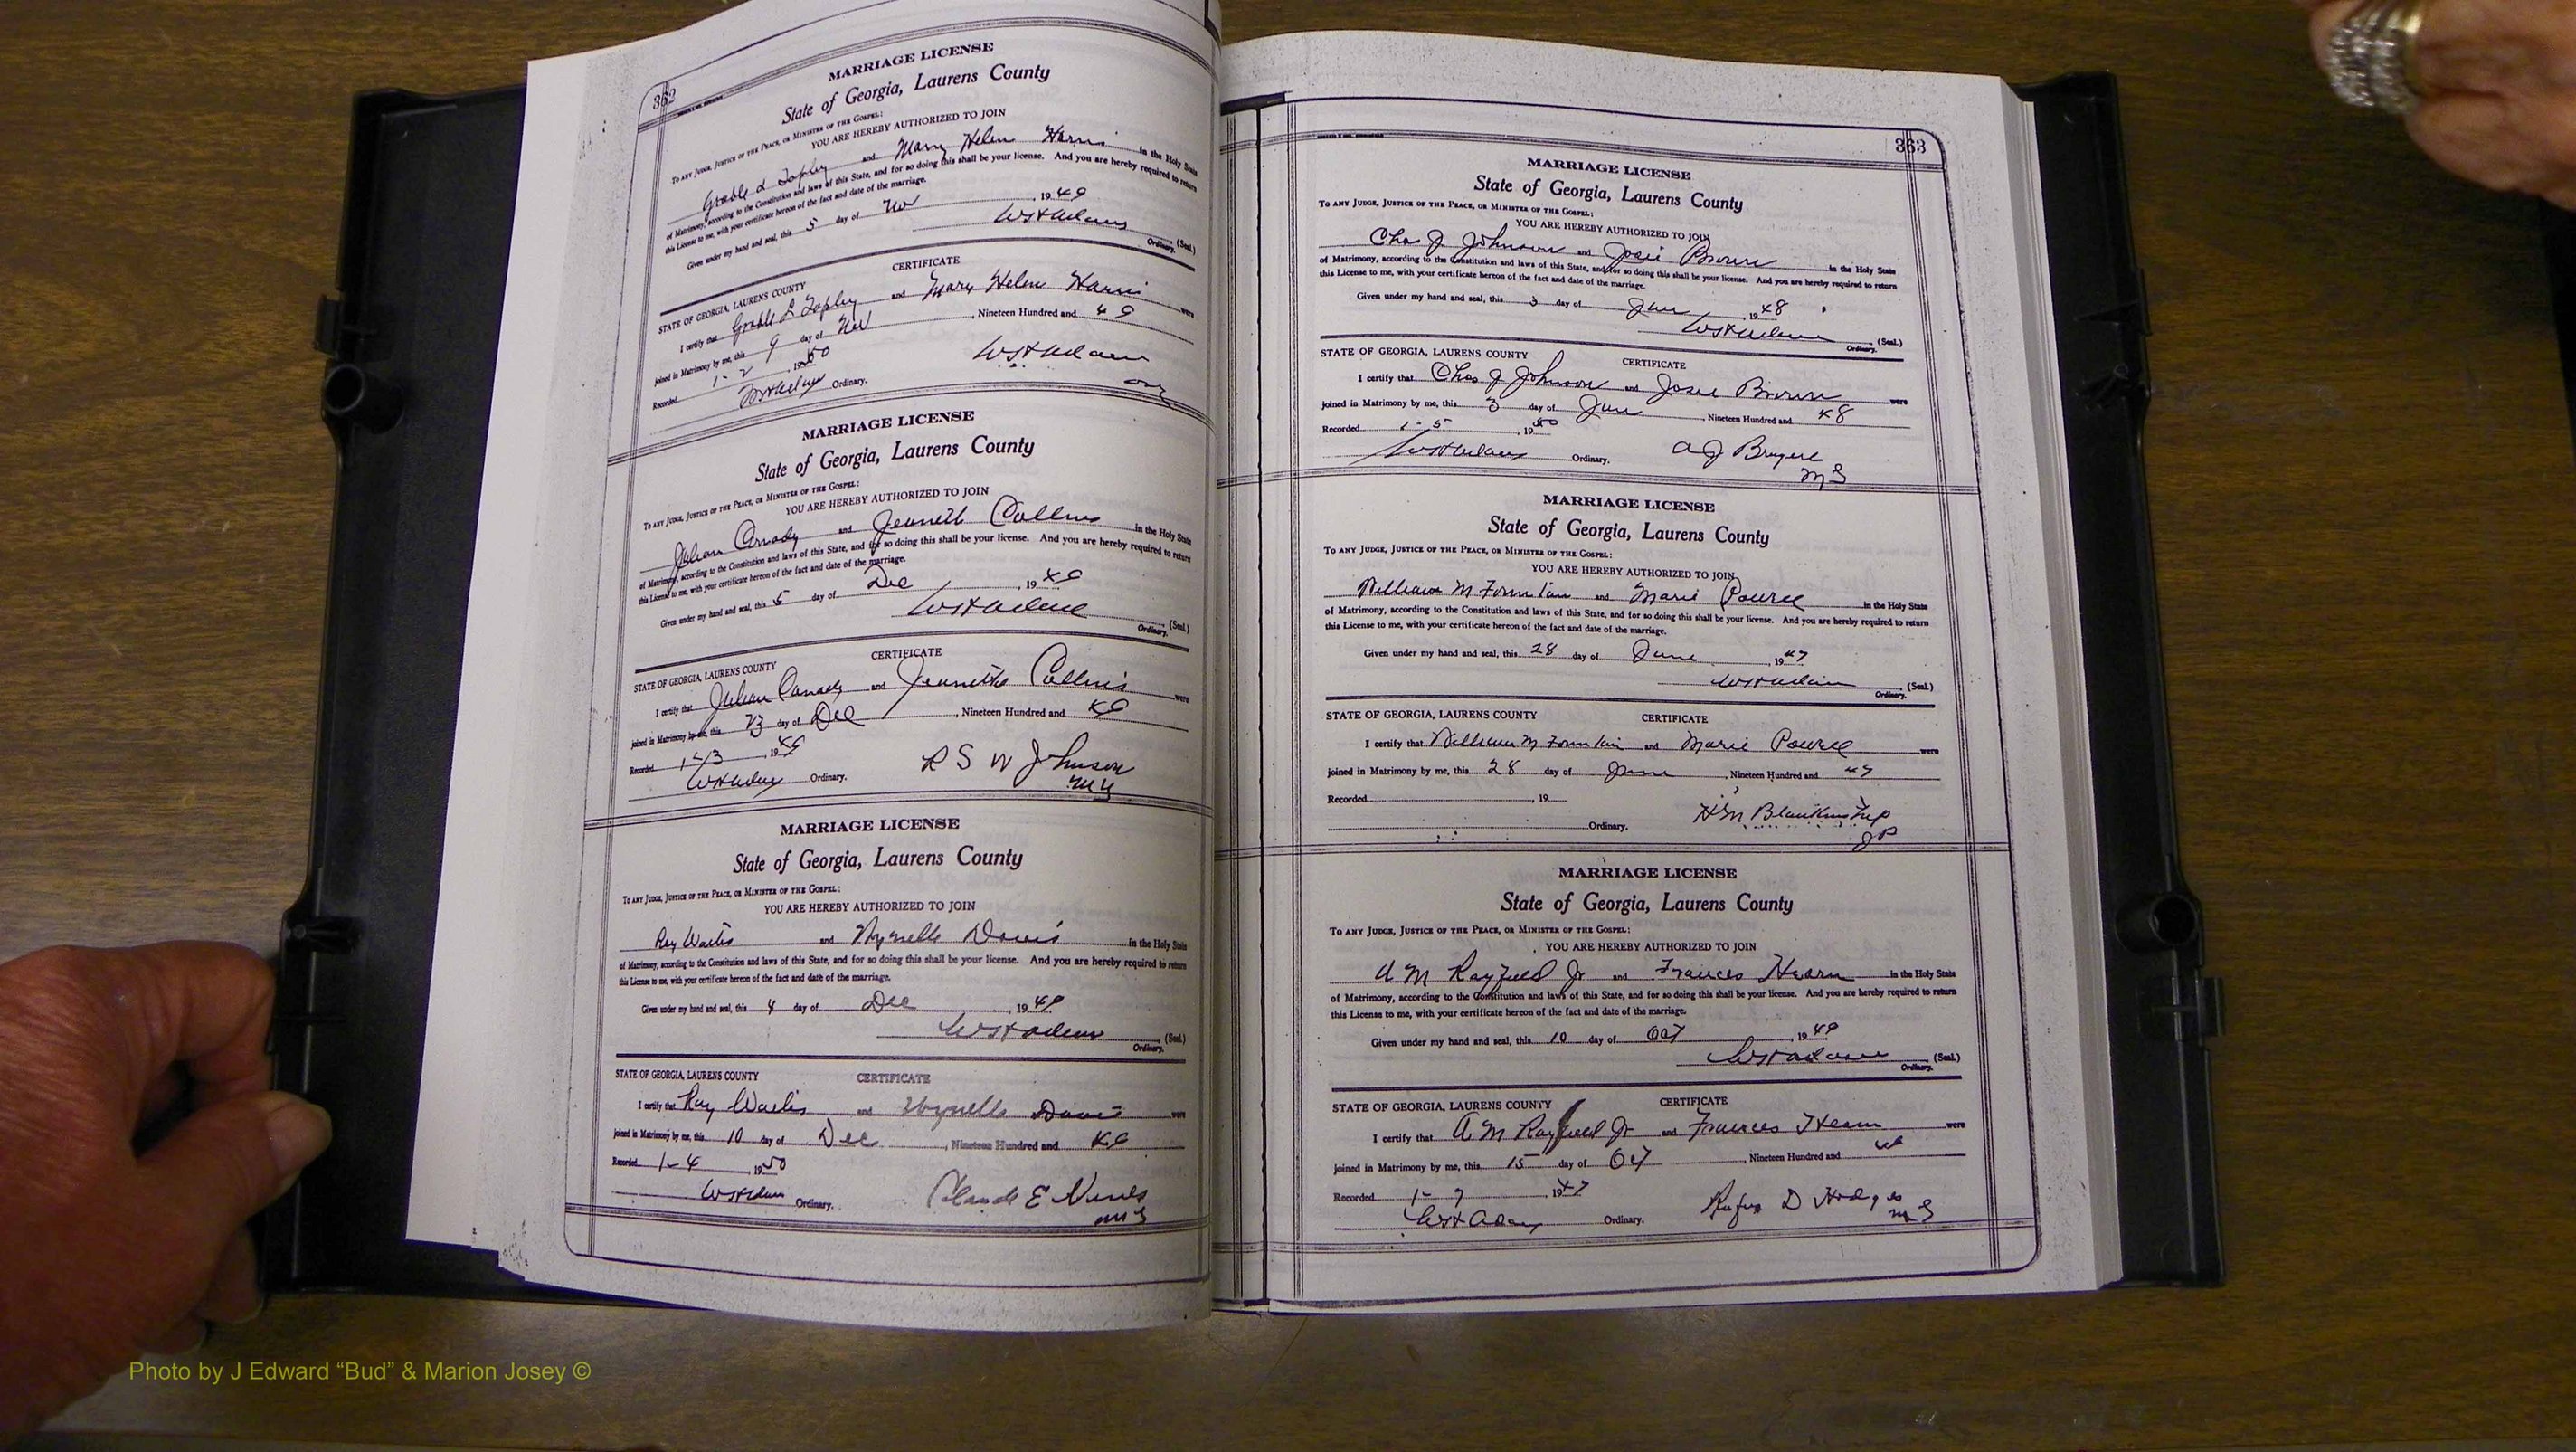 362
MARRIAGE LICENSE
State of Georgia, Laurens County
To any Judge, Justice of the Peace, or Minister of the Gospel:
YOU ARE HEREBY AUTHORIZED TO JOIN
Grable L Topley and Mary Helen Harris in the Holy State
of Matrimony, according to the Constitution and laws of this State, and for so doing this shall be your license. And you are hereby required to return
this License to me, with your certificate hereon of the fact and date of the marriage.
Given under my hand and seal, this 5 day of Nov , 1949
WH Adams (Seal.)
Ordinary.
CERTIFICATE
STATE OF GEORGIA, LAURENS COUNTY
I certify that Grable L Topley and Mary Helen Harris were
joined in Matrimony by me, this 9 day of Nov , Nineteen Hundred and 49
Recorded 1-2 , 1950
Ordinary.
MARRIAGE LICENSE
State of Georgia, Laurens County
To any Judge, Justice of the Peace, or Minister of the Gospel:
YOU ARE HEREBY AUTHORIZED TO JOIN
Julian Canady and Jeanette Collins in the Holy State
of Matrimony, according to the Constitution and laws of this State, and for so doing this shall be your license. And you are hereby required to return
this License to me, with your certificate hereon of the fact and date of the marriage.
Given under my hand and seal, this 5 day of Dec , 1949
(Seal.)
Ordinary.
CERTIFICATE
STATE OF GEORGIA, LAURENS COUNTY
I certify that Julian Canady and Jeanette Collins were
joined in Matrimony by me, this 23 day of Dec , Nineteen Hundred and 49
Recorded , 19
R S W Johnson
Ordinary.
MARRIAGE LICENSE
State of Georgia, Laurens County
To any Judge, Justice of the Peace, or Minister of the Gospel:
YOU ARE HEREBY AUTHORIZED TO JOIN
Ray and Wynelle Davis in the Holy State
of Matrimony, according to the Constitution and laws of this State, and for so doing this shall be your license. And you are hereby required to return
this License to me, with your certificate hereon of the fact and date of the marriage.
Given under my hand and seal, this 4 day of Dec , 1949
(Seal.)
Ordinary.
STATE OF GEORGIA, LAURENS COUNTY CERTIFICATE
I certify that Ray and Wynelle Davis were
joined in Matrimony by me, this 10 day of Dec , Nineteen Hundred and 49
Recorded 1-4 , 1950
Claude E
Ordinary.
MG
363
MARRIAGE LICENSE
State of Georgia, Laurens County
To any Judge, Justice of the Peace, or Minister of the Gospel:
YOU ARE HEREBY AUTHORIZED TO JOIN
Chas J Johnson and Josie Brown in the Holy State
of Matrimony, according to the Constitution and laws of this State, and for so doing this shall be your license. And you are hereby required to return
this License to me, with your certificate hereon of the fact and date of the marriage.
Given under my hand and seal, this 3 day of Jan , 1948
(Seal.)
Ordinary.
STATE OF GEORGIA, LAURENS COUNTY CERTIFICATE
I certify that Chas J Johnson and Josie Brown were
joined in Matrimony by me, this 3 day of Jan , Nineteen Hundred and 48
Recorded 1-5 , 1950
Ordinary. A J
MG
MARRIAGE LICENSE
State of Georgia, Laurens County
To any Judge, Justice of the Peace, or Minister of the Gospel:
YOU ARE HEREBY AUTHORIZED TO JOIN
William M Fountain and Marie in the Holy State
of Matrimony, according to the Constitution and laws of this State, and for so doing this shall be your license. And you are hereby required to return
this License to me, with your certificate hereon of the fact and date of the marriage.
Given under my hand and seal, this 28 day of June , 1947
(Seal.)
Ordinary.
STATE OF GEORGIA, LAURENS COUNTY CERTIFICATE
I certify that William M Fountain and Marie were
joined in Matrimony by me, this 28 day of June , Nineteen Hundred and 47
Recorded , 19
HM Blankinship
Ordinary.
JP
MARRIAGE LICENSE
State of Georgia, Laurens County
To any Judge, Justice of the Peace, or Minister of the Gospel:
YOU ARE HEREBY AUTHORIZED TO JOIN
A M Rayfield Jr and Frances Hearn in the Holy State
of Matrimony, according to the Constitution and laws of this State, and for so doing this shall be your license. And you are hereby required to return
this License to me, with your certificate hereon of the fact and date of the marriage.
Given under my hand and seal, this 10 day of Oct , 1949
(Seal.)
Ordinary.
STATE OF GEORGIA, LAURENS COUNTY CERTIFICATE
I certify that A M Rayfield Jr and Frances Hearn were
joined in Matrimony by me, this 15 day of Oct , Nineteen Hundred and
Recorded 1-9 , 19
WH Adams Ordinary. Rufus D Hodges
MG
Photo by J Edward “Bud” & Marion Josey ©